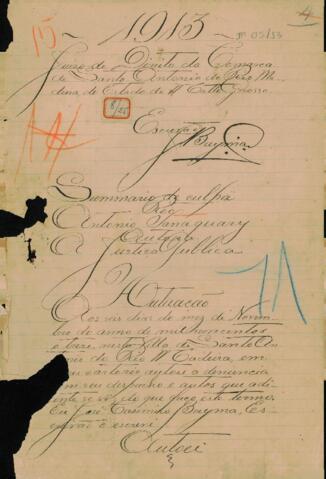 1913
15
Juizo de Direito da Comarca
de Santo Antonio do Rio Ma-
deira, do Estado de Matto Grosso
Escrivão
Bayma
Summario de culpa
Réo
Antonio
Autora
A Justiça Publica
Autuação
Aos seis dias do mez de Novem-
bro do anno de mil novecentos
e treze, nesta villa de Santo An-
tonio do Rio Madeira, em
meu cartorio autuei a denuncia
com seu despacho e autos que adi-
ante se vê, do que faço este termo.
Eu José Casimiro Bayma, Es-
crivão o escrevi.
Autuei